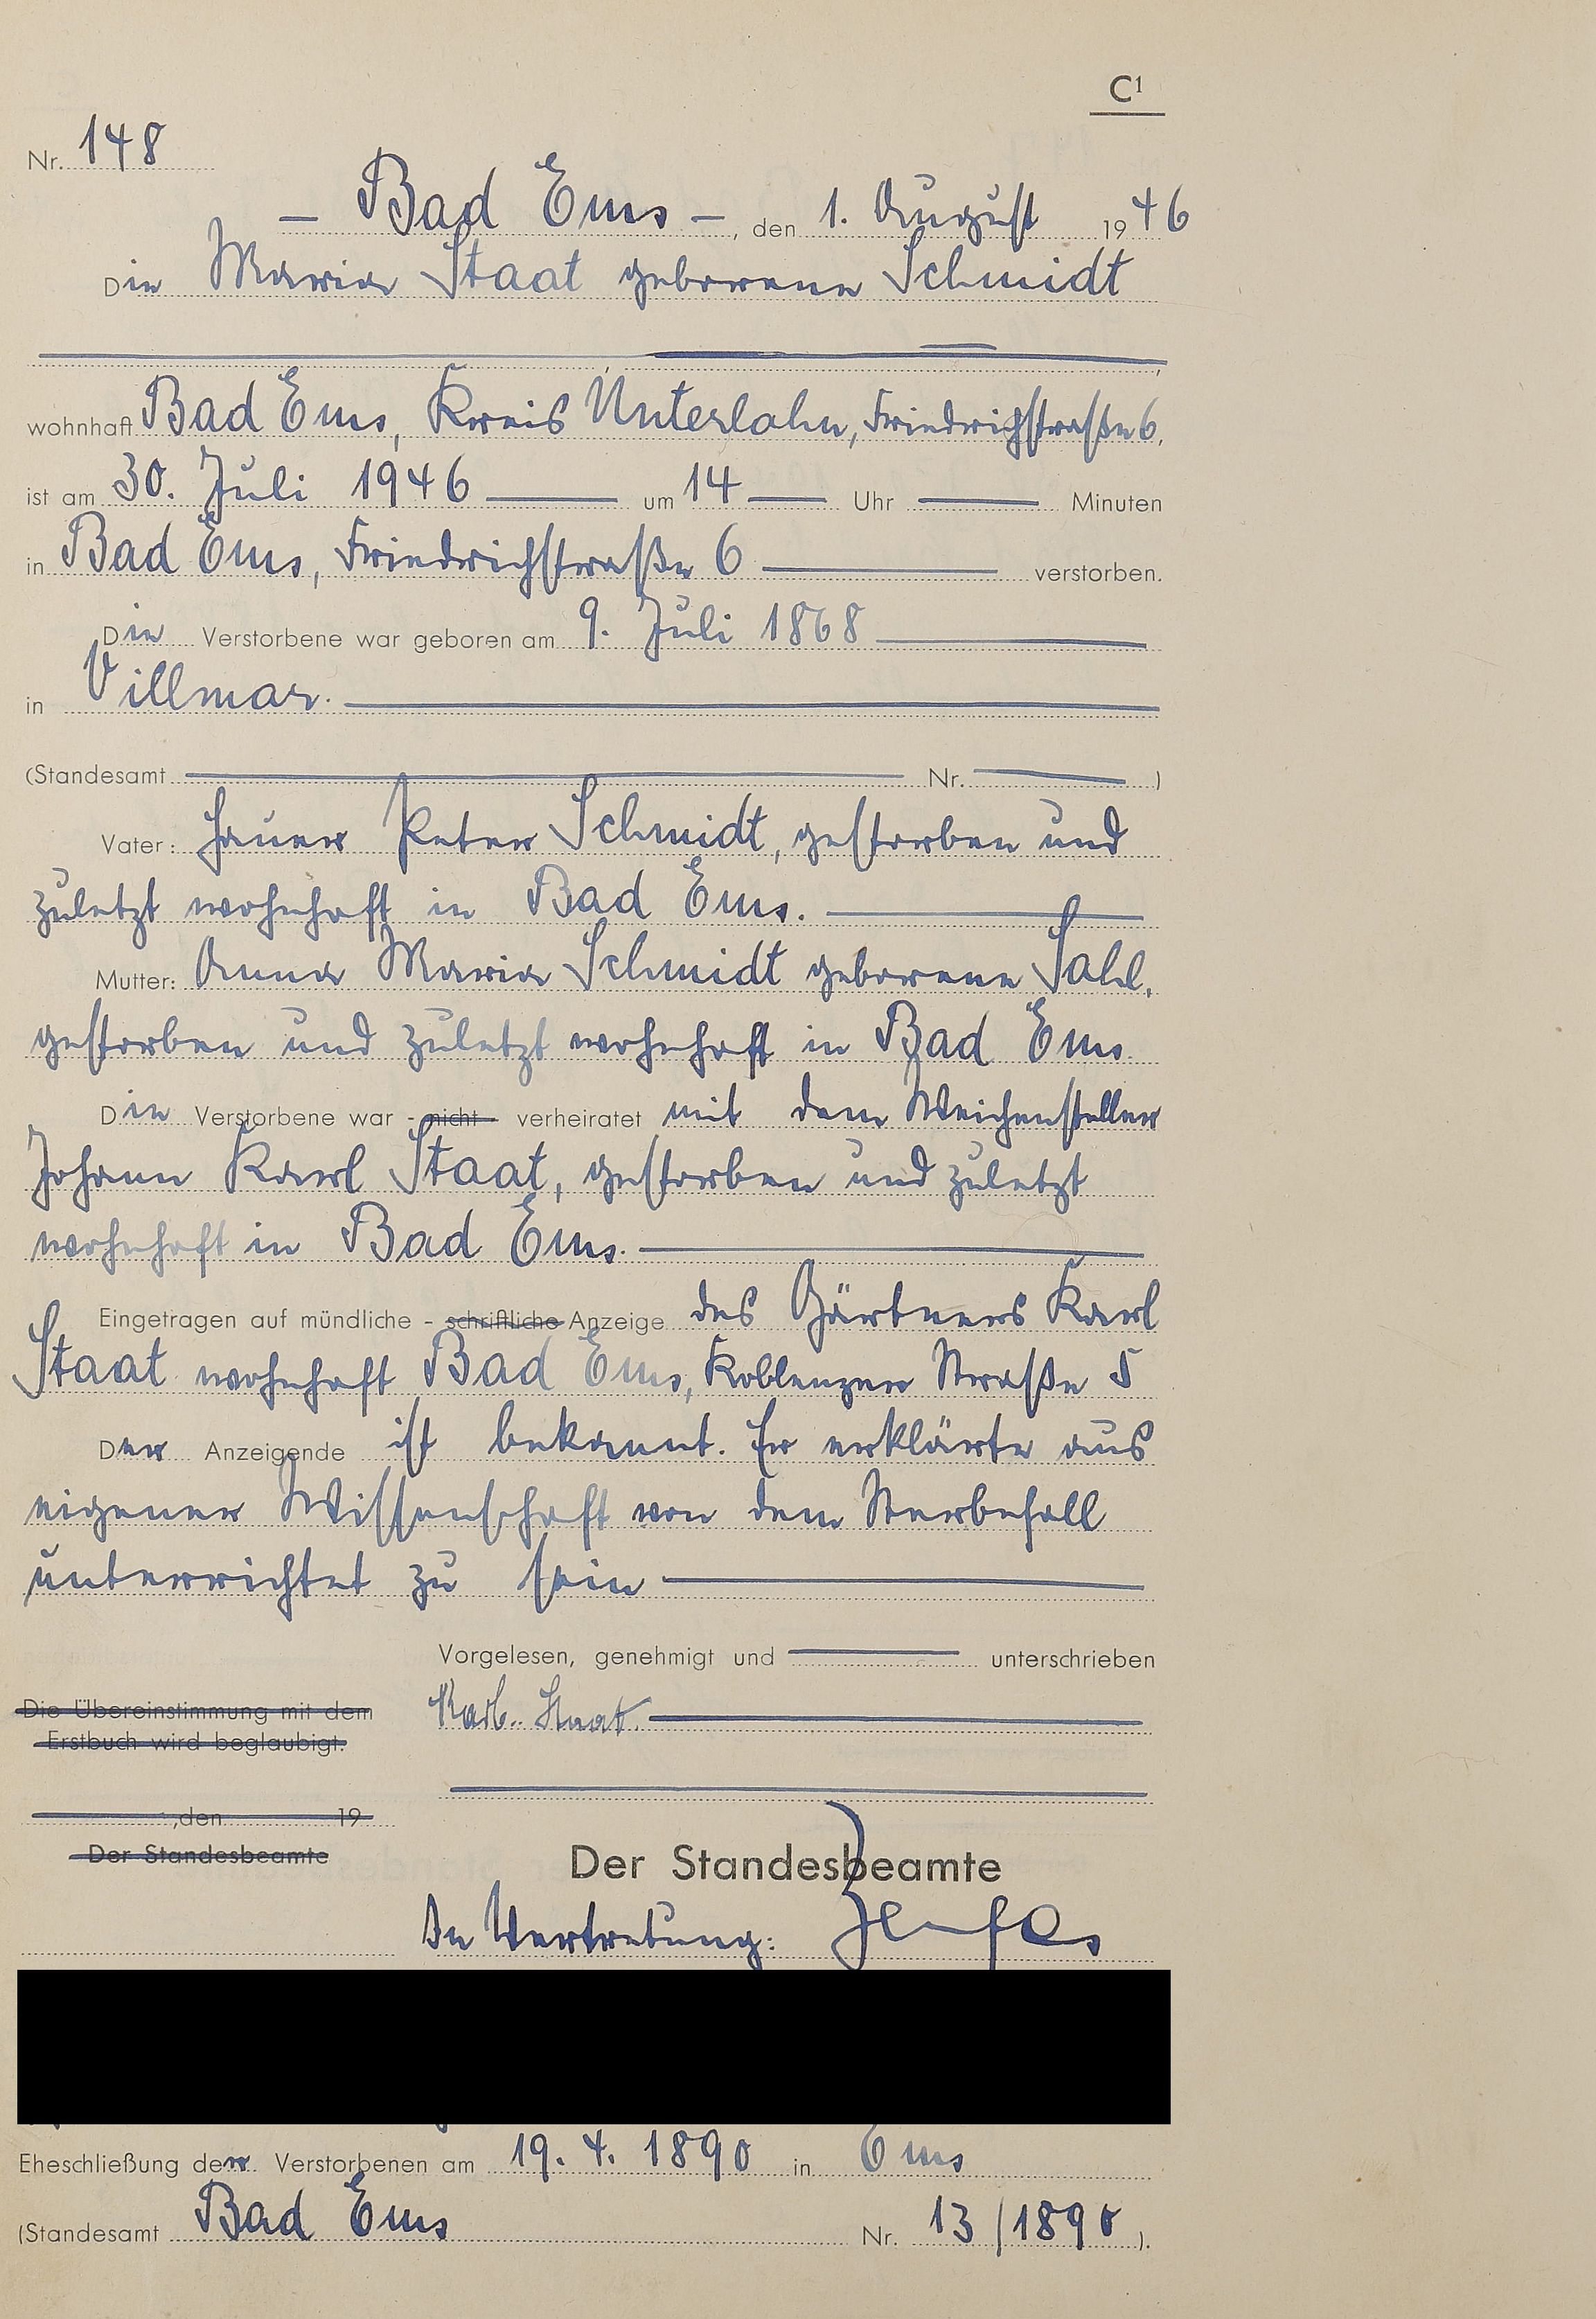 C1
Nr. 148
— Bad Ems —, den 1. August 1946
Die Maria Staat geborene Schmidt
wohnhaft Bad Ems, Kreis Unterlahn, Friedrichstraße 6,
ist am 30. Juli 1946 um 14 Uhr Minuten
in Bad Ems, Friedrichstraße 6 verstorben.
Die Verstorbene war geboren am 9. Juli 1868
in Villmar.
(Standesamt Nr. )
Vater: Hauer Peter Schmidt, gestorben und
zuletzt wohnhaft in Bad Ems.
Mutter: Anna Maria Schmidt geborene Sahl,
gestorben und zuletzt wohnhaft in Bad Ems
Die Verstorbene war - nicht - verheiratet mit dem Weichensteller
Johann Karl Staat, gestorben und zuletzt
wohnhaft in Bad Ems.
Eingetragen auf mündliche - schriftliche Anzeige des Gärtners Karl
Staat wohnhaft Bad Ems, Koblenzer Straße 5
Der Anzeigende ist bekannt. Er erklärte aus
eigener Wissenschaft von dem Sterbefall
unterrichtet zu sein
Vorgelesen, genehmigt und unterschrieben
Die Übereinstimmung mit dem
Erstbuch wird beglaubigt.
Karl Staat
,den 19
Der Standesbeamte
Der Standesbeamte
In Vertretung:
Eheschließung der Verstorbenen am 19. 4. 1890 in Ems
(Standesamt Bad Ems Nr. 13/1890).